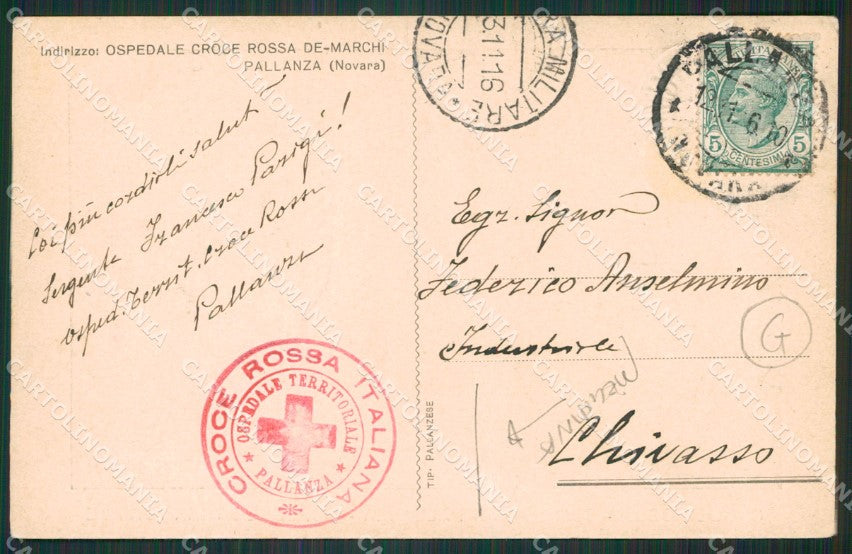 Indirizzo: OSPEDALE CROCE ROSSA DE-MARCHI
PALLANZA (Novara)
Coi più cordiali saluti
Sergente Francesco Parigi!
Osped. Territ. Croce Rossa
Pallanza
CROCE ROSSA ITALIANA
OSPEDALE TERRITORIALE
PALLANZA
TIP. PALLANZESE
MILITARE
3.11.16
PALLANZA
NOVARA
5 CENTESIMI 5
Egr. Signor
Federico Anselmino
Industriale
Chivasso
G
CARTOLINOMANIA